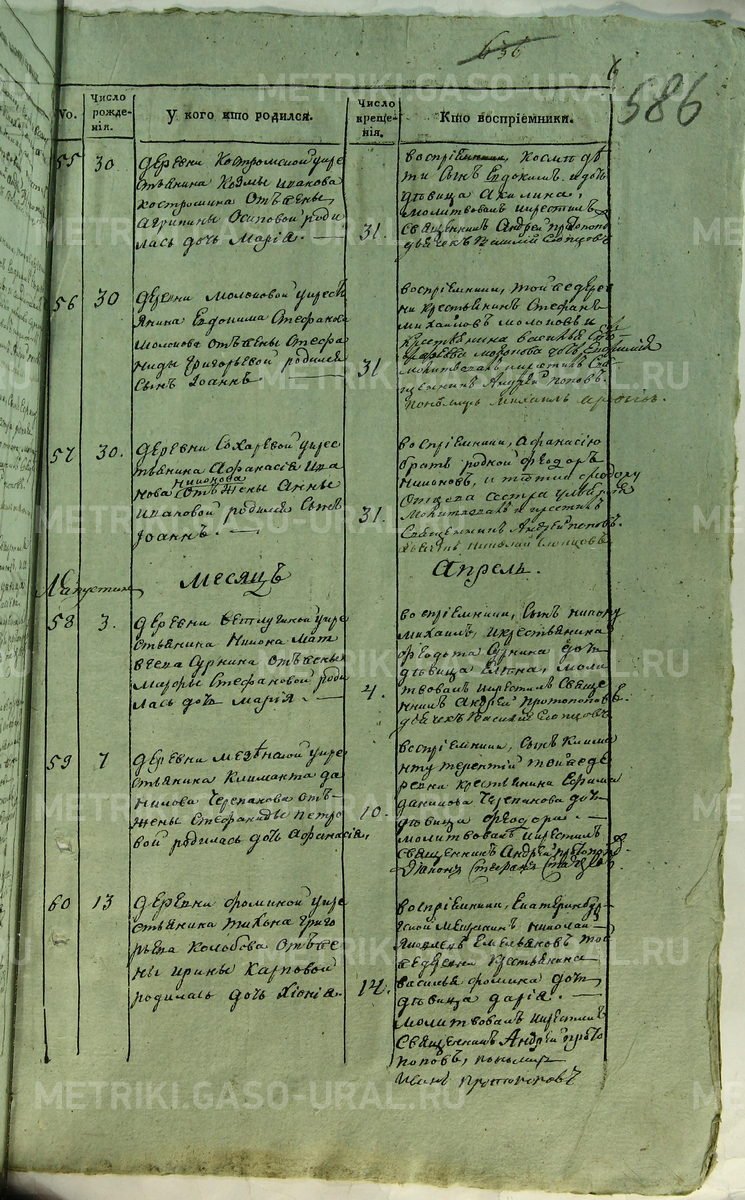 636
6
586
No.
Число рожденія.
У кого кто родился.
Число крещенія.
Кто воспріемники.
55
30
деревни Костромской кре
стьянина Козмы Ипакова
Костромина отъ жены
Агрипины Осиповой роди
лась дочь Марія.
31.
воспріемники, Космы дѣ
ти сынъ Евдокимъ и дочь
дѣвица Акилина,
молитвовалъ и крестилъ
Священникъ Андрей Протопопо
дьячекъ Василий Слопцовъ
56
30
деревни Молоковой крест
янина Евдокима Стефанова
Молокова отъ жены Стефа
ниды Григорьевой родился
сынъ Іоаннъ
31
воспріемники, той же дерев
ни крестьянинъ Стефанъ
Михайловъ Молоковъ и
крестьянина Василья
молитвовалъ и крестилъ Свя
щенникъ Андрей Попов.
пономарь Михаилъ
57
30.
деревни Сохаревой крес
тьянина Афанасія Ива
нова
Никонова
отъ жены Анны
Ивановой родился сынъ
Іоаннъ.
31.
воспріемники, Афанасію
братъ родной Феодоръ
Никоновъ, и
сестра
молитвовалъ и крестилъ
Священникъ Андрей Попов.
Николай Слопцовъ
Месяцъ
Апрель.
58
3.
деревни Ветлугиной кре
стьянина Никона Мат
веева Сурнина отъ жены
Мавры Стефановой роди
лась дочь Марія.
4.
воспріемники, сынъ Никону
Михаилъ, и крестьянина
Федота Сурнина дочь
дѣвица Елена, моли
твовалъ и крестилъ Свяще
нникъ Андрей Протопоповъ.
дьячекъ Василий Слопцовъ
59
7
деревни Мезенской кре
стьянина Климанта Да
нилова Черепанова отъ
жены Стефаниды Петро
вой родилась дочь Афанасія,
10.
воспріемники, сынъ Клима
нту Терентій той же де
ревни крестьянина Ефима
Данилова Черепанова дочь
дѣвица Феодора.
молитвовалъ и крестилъ
Священникъ Андрей Протопоп.
Диаконъ Стефанъ
60
13
деревни Фоминой кре
стьянина Тихона Григо
рьева Колобова отъ же
ны Ирины Карповой
родилась дочь Хіонія.
14.
воспріемники, Екатеринбур
гской мещанинъ Николай
Яковлевъ Емельяновъ то
же деревни крестьянина
Василья Фомина дочь
дѣвица Дарія.
молитвовалъ и крестилъ
Священникъ Андрей Прото
поповъ, пономарь
Иванъ Протопоповъ
METRIKI.GASO-URAL.RU